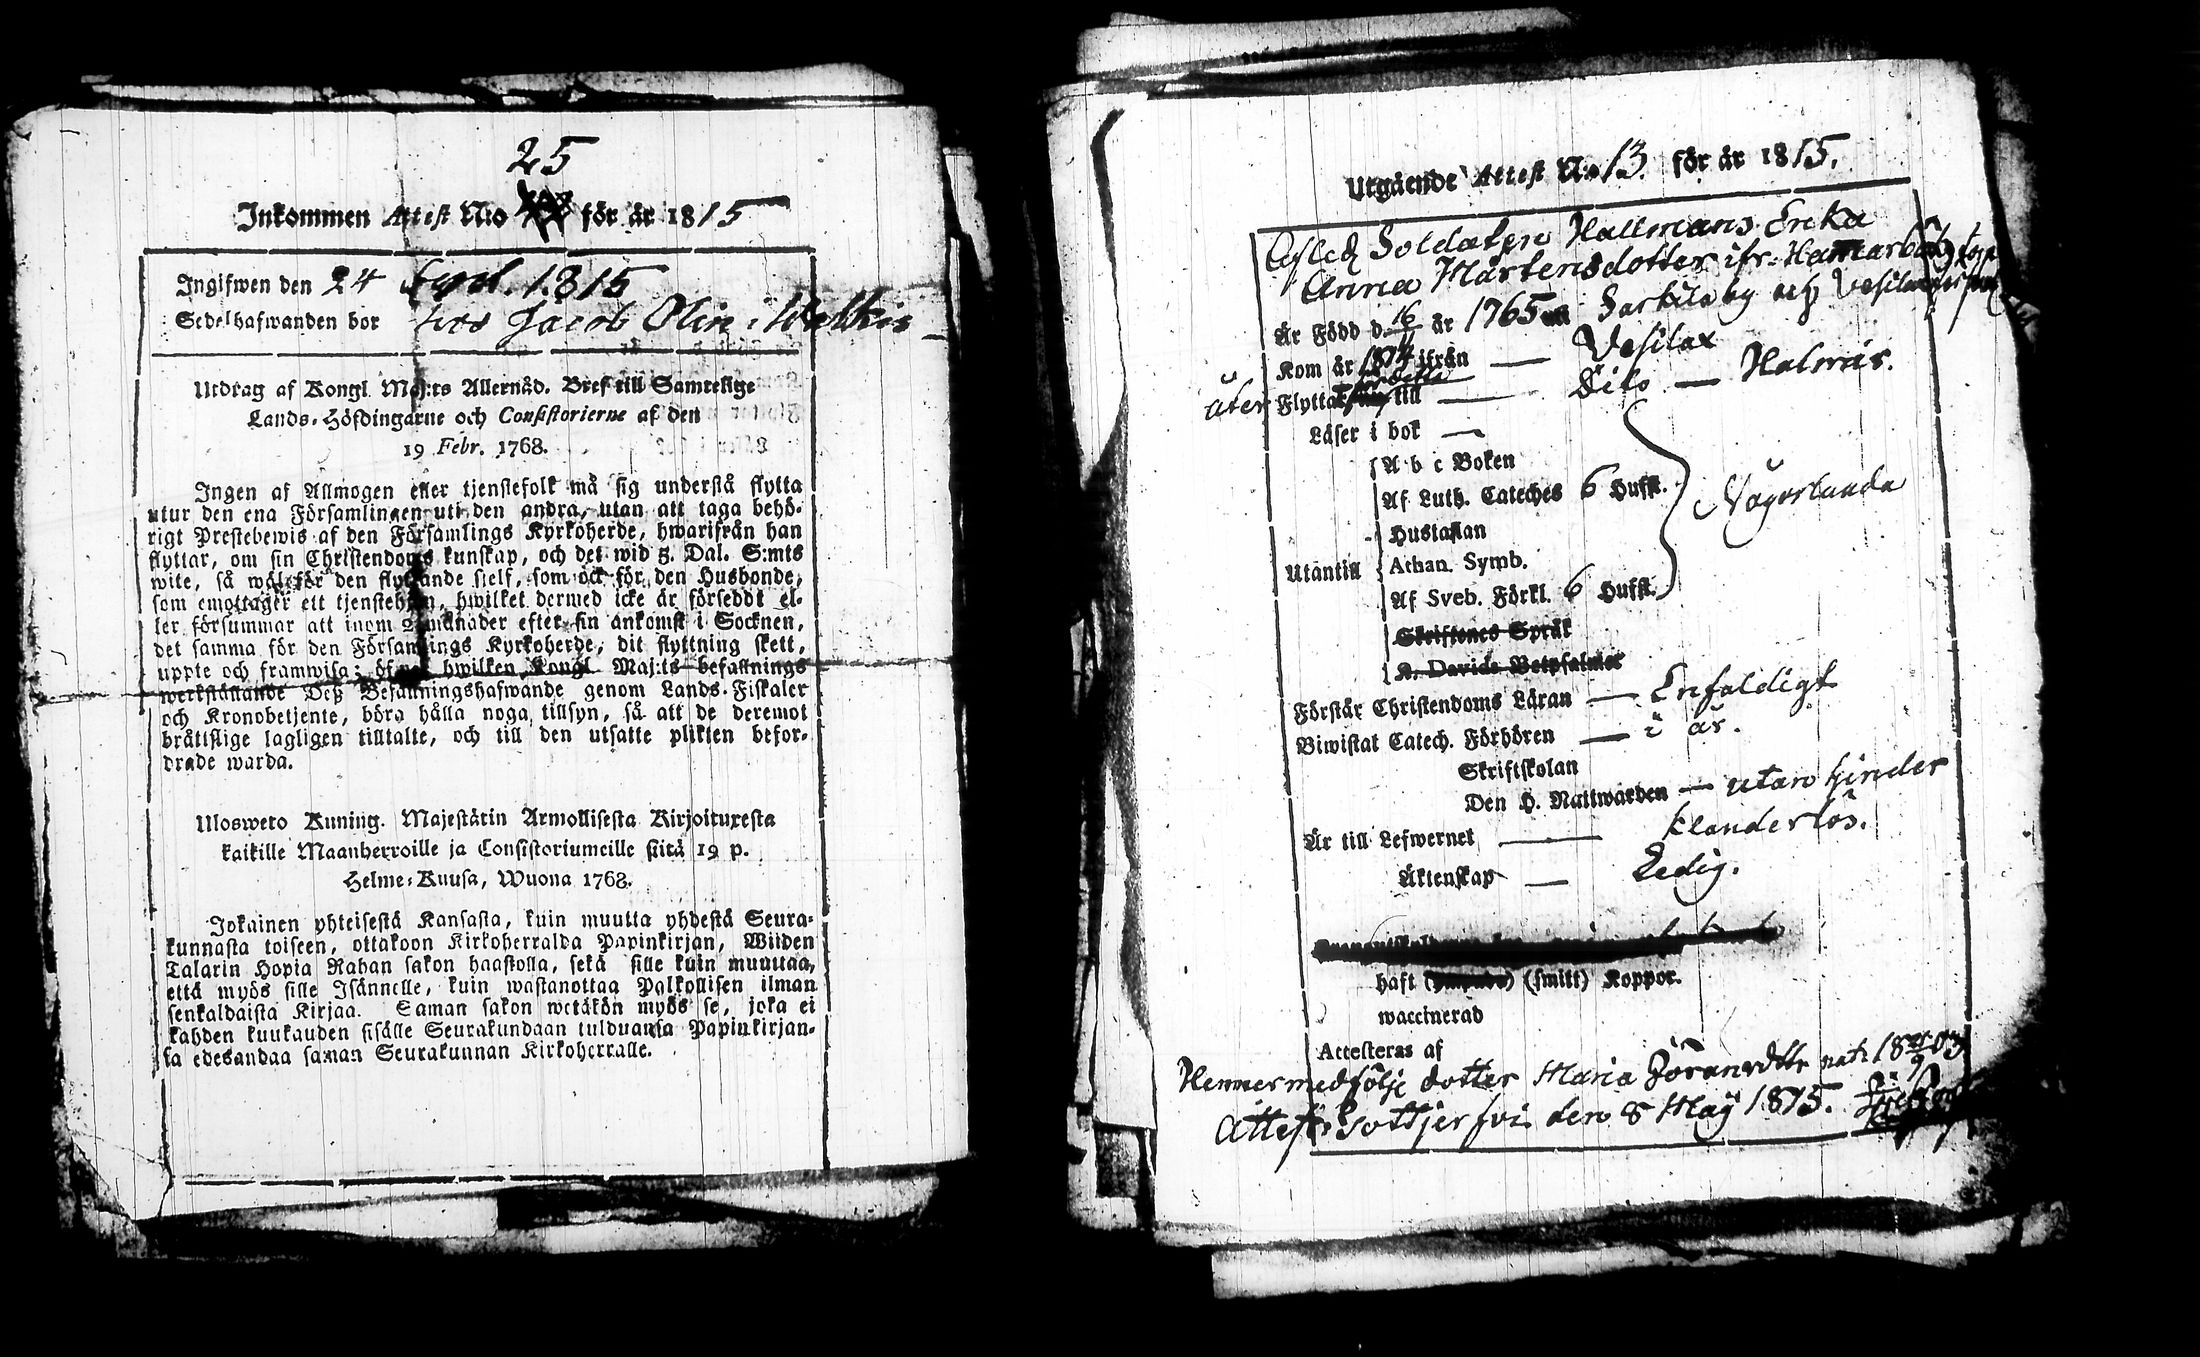 25
Inkommen Attest N:o för år 1815
Ingifwen den 24 Sept. 1815
Sedelhafwanden bor hos Jacob Olin i
Utdrag af Kongl. Maj:ts Allernåd. Bref till Samtelige
Lands-Höfdingarne och Consistorierne af den
19 Febr. 1768.
Ingen af Allmogen eller tjenstefolk må sig understå flytta
utur den ena Församlingen uti den andra, utan att taga behö-
rigt Prestebewis af den Församlings Kyrkoherde, hwarifrån han
flyttar, om sin Christendoms kunskap, och det wid 5. Dal. S:mts
wite, så wäl för den flyttande sjelf, som ock för den Husbonde,
som emottager ett tjenstehjon, hwilket dermed icke är försedt el-
ler försummar att inom 2 månader efter sin ankomst i Socknen,
det samma för den Församlings Kyrkoherde, dit flyttning skett,
uppte och framwisa; öfwer hwilken Kongl. Maj:ts befallnings
werkställande Deß Befallningshafwande genom Lands-Fiskaler
och Kronobetjente, böra hålla noga tillsyn, så att de deremot
bråttslige lagligen tilltalte, och till den utsatte plikten befor-
drade warda.
Ulosweto Kuning. Majestätin Armollisesta Kirjoituxesta
kaikille Maanherroille ja Consistoriumeille siitä 19 p.
Helme-Kuusa, Wuona 1768.
Jokainen yhteisestä Kansasta, kuin muutta yhdestä Seura-
kunnasta toiseen, ottakoon Kirkoherralda Papinkirjan, Wiiden
Talarin Hopia Rahan sakon haastolla, sekä sille kuin muuttaa,
että myös sille Isännelle, kuin wastanottaa Palkollisen ilman
senkaldaista Kirjaa. Saman sakon wetäkön myös se, joka ei
kahden kuukauden sisälle Seurakundaan tulduansa Papinkirjan-
sa edesandaa saman Seurakunnan Kirkoherralle.
Utgående Attest N:o 13. för år 1815.
Afsked Soldaten Hallmans Enka
Anna Mårtensdotter ifr.
Är Född d. 16 år 1765 Sarkila by och
Kom år ifrån — Vesilax
åter Flyttar till — Dito — Halmis.
Läser i bok —
A b c Boken
Af Luth. Cateches 6 Hufst.
Hustaflan
Utantill Athan. Symb. Någorlunda
Af Sveb. Förkl. 6 Hufst.
Skriftenes Språk
K. Davids Botpsalmer
Förstår Christendoms Läran — Enfaldigt
Biwistat Catech. Förhören — i år.
Skriftskolan
Den H. Nattwarden — utan hinder
Är till Lefwernet — klanderlös.
Äktenskap — Ledig.
haft (smitt) Koppor.
waccinerad
Attesteras af
Hennes medfölje dotter Maria Göransdttr nat.
Attest. den 8 Maij 1815.